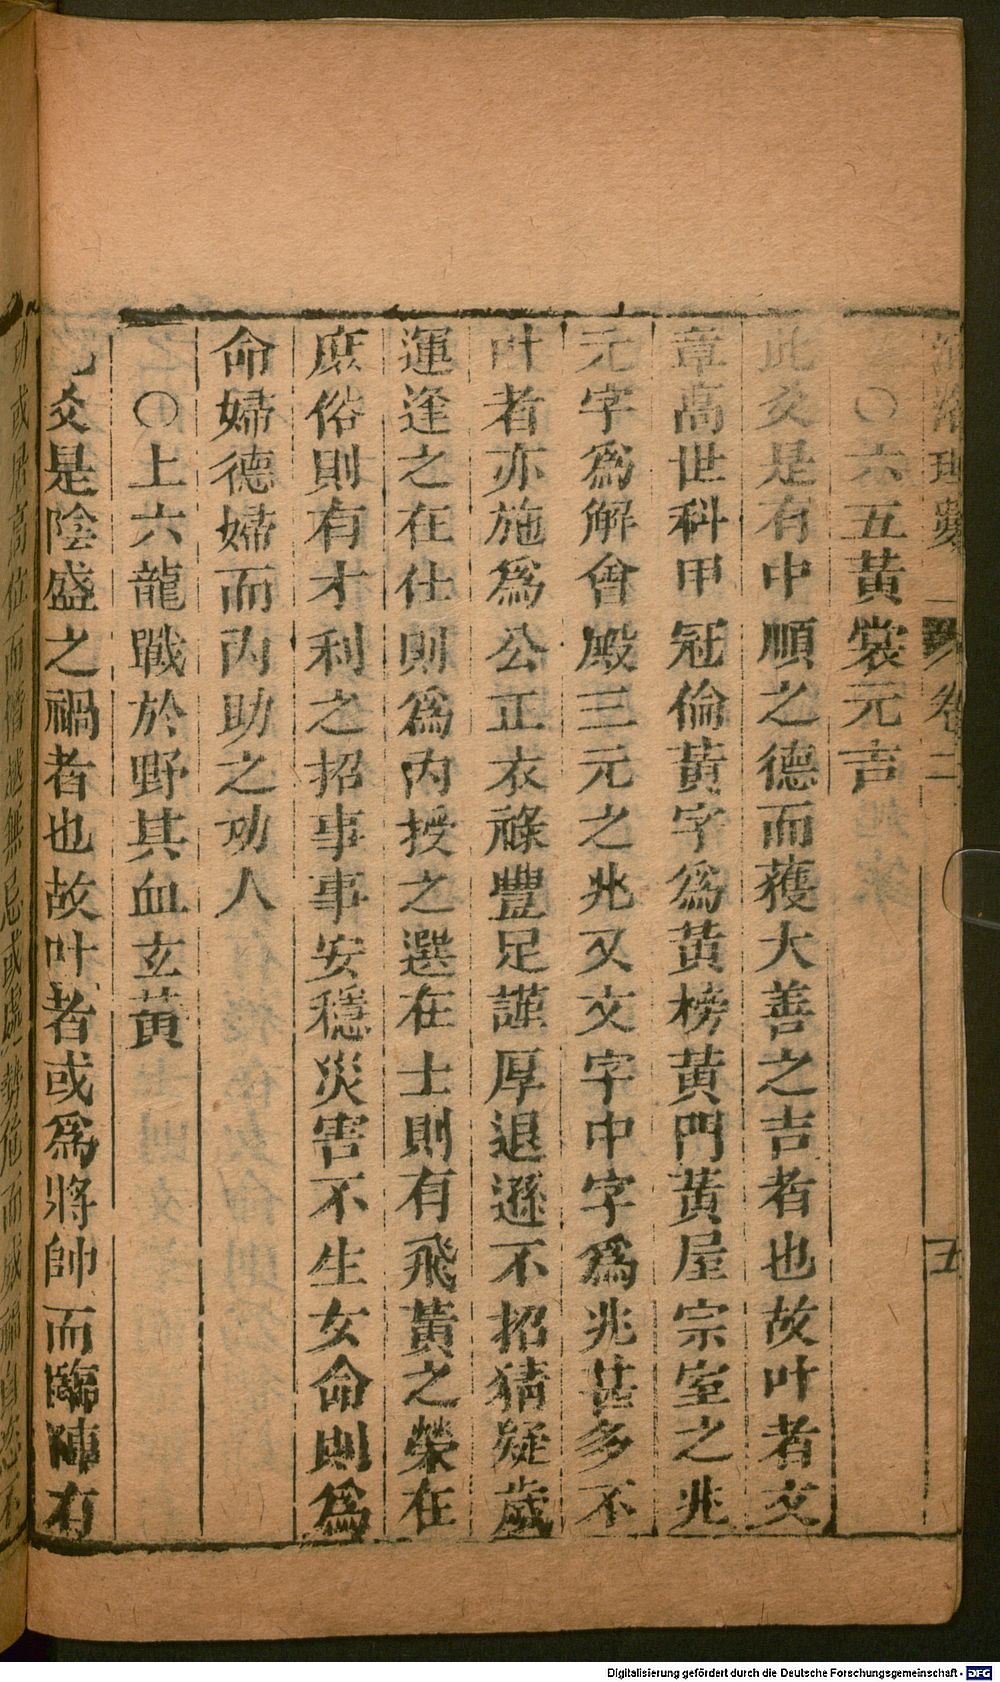 河洛理數 卷二 五
○六五黃裳元吉
此爻是有中順之德而獲大善之吉者也故叶者文
章高世科甲冠倫黃字為黃榜黃門黃屋宗室之兆
元字為解會殿三元之兆又文字中字為兆甚多不
叶者亦施為公正衣祿豐足謹厚退遜不招猜疑歲
運逢之在仕則為內授之選在士則有飛黃之榮在
庶俗則有才利之招事事安穩災害不生女命則為
命婦德婦而內助之功人
○上六龍戰於野其血玄黃
此爻是陰盛之禍者也故叶者或為將帥而臨陣有
功或居高位而僭越無忌或處勢危而威福自恣不
Digitalisierung gefördert durch die Deutsche Forschungsgemeinschaft - DFG